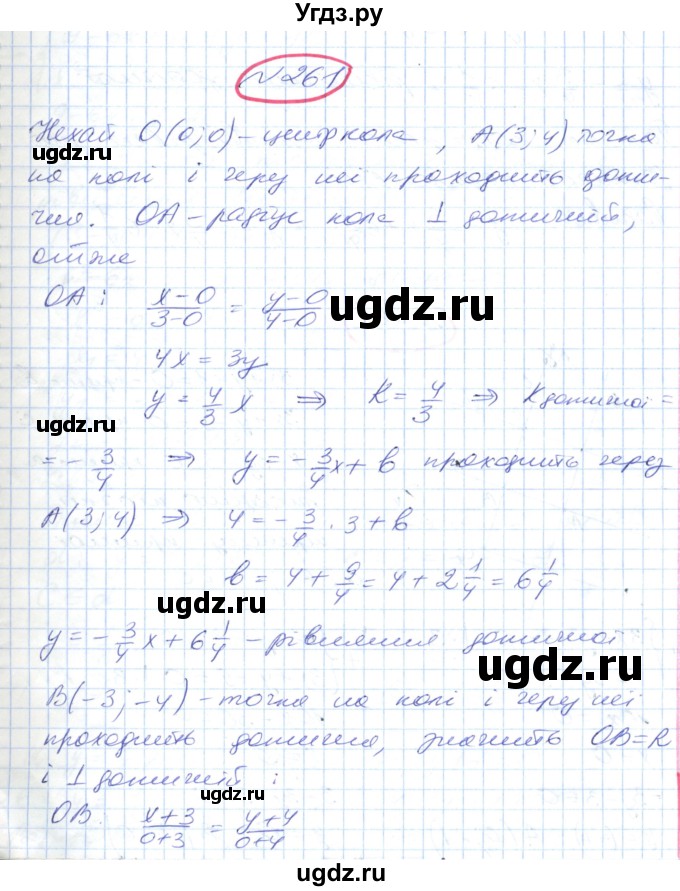 Угдз.ру
№261
Нехай O(0;0) – центр кола, A(3;4) точка
на колі і через неї проходить доти-
чна. OA – радіус кола ⊥ дотичній,
отже
OA: (x-0)/(3-0) = (y-0)/(4-0)
ugdz.ru
4x = 3y
y = 4/3 x ⇒ K = 4/3 ⇒ K дотичної =
= - 3/4 ⇒ y = - 3/4 x + b проходить через
A(3;4) ⇒ 4 = - 3/4 · 3 + b
b = 4 + 9/4 = 4 + 2 1/4 = 6 1/4
y = - 3/4 x + 6 1/4 – рівняння дотичної
B(-3;-4) – точка на колі і через неї
проходить дотична, значить OB = R
і ⊥ дотичній:
OB. (x+3)/(0+3) = (y+4)/(0+4)
ugdz.ru
ugdz.ru
ugdz.ru
ugdz.ru
ugdz.ru
ugdz.ru
ugdz.ru
ugdz.ru